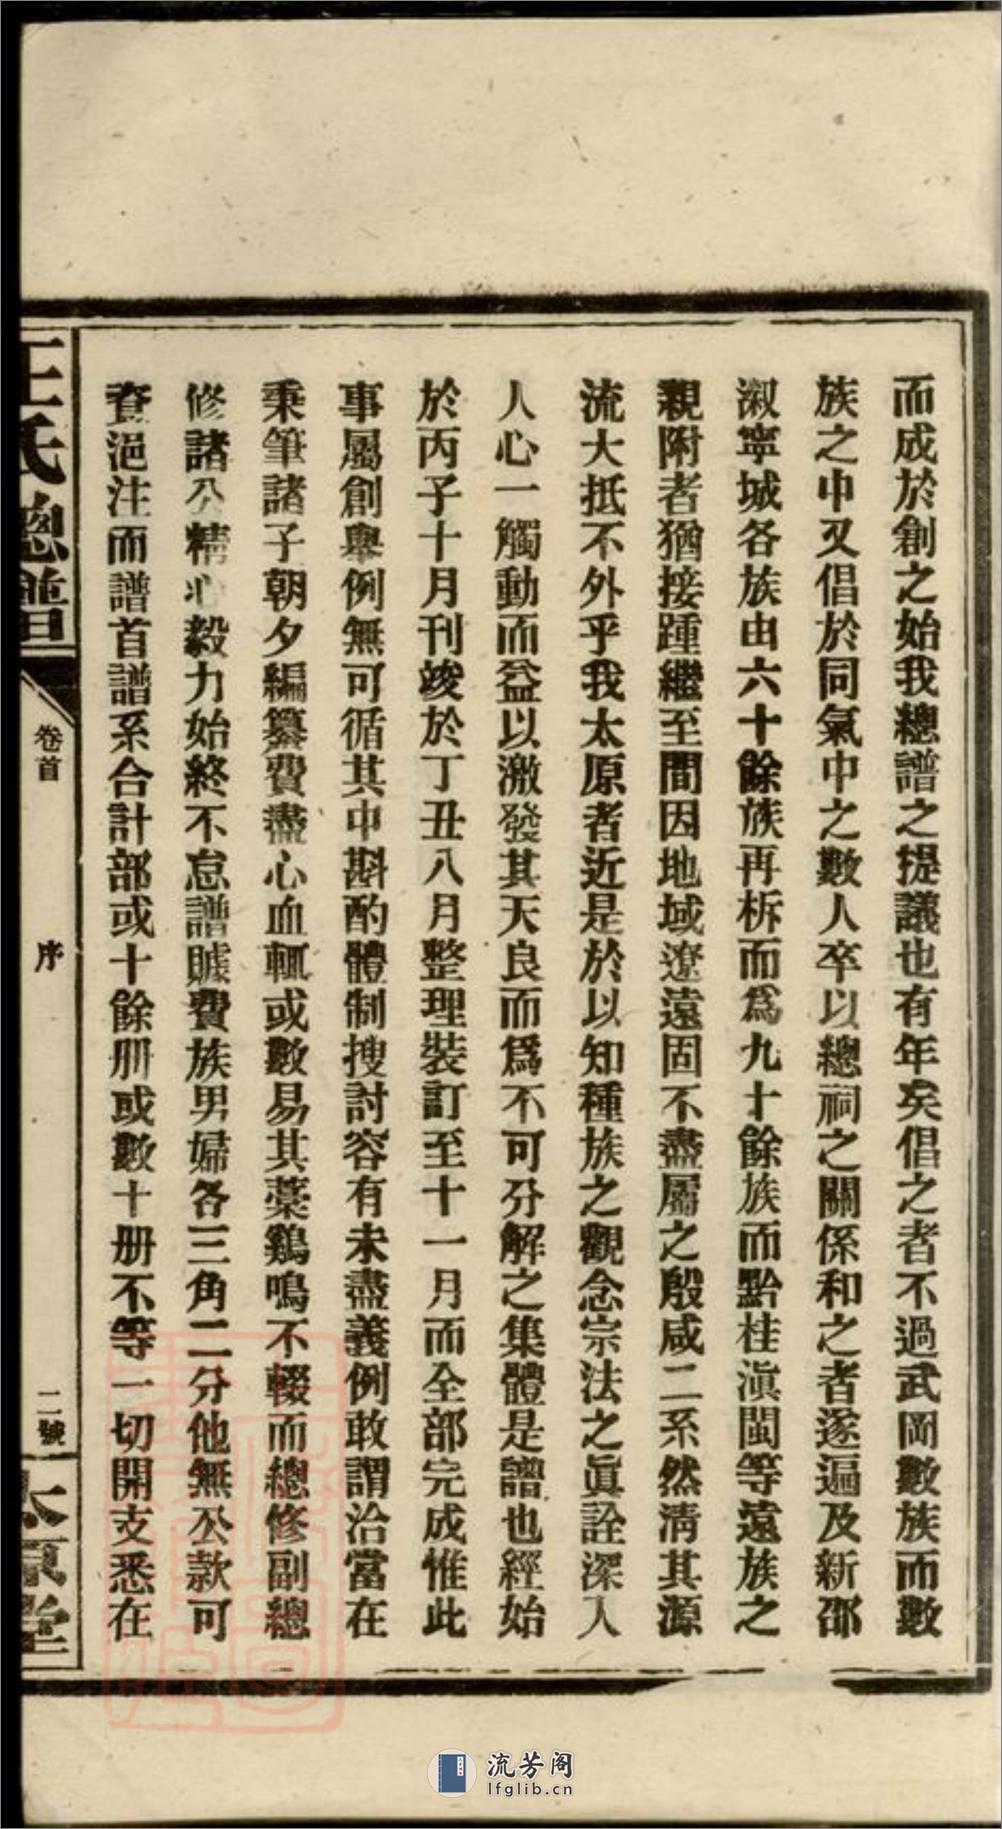 而成於創之始我總譜之提議也有年矣倡之者不過武岡數族而數
族之中又倡於同氣中之數人卒以總祠之關係和之者遂遍及新邵
溆寧城各族由六十餘族再析而爲九十餘族而黔桂滇閩等遠族之
親附者猶接踵繼至間因地域遼遠固不盡屬之殷咸二系然淸其源
流大抵不外乎我太原者近是於以知種族之觀念宗法之眞詮深入
人心一觸動而益以激發其天良而爲不可分解之集體是譜也經始
於丙子十月刊竣於丁丑八月整理裝訂至十一月而全部完成惟此
事屬創舉例無可循其中斟酌體制搜討容有未盡義例敢謂洽當在
秉筆諸子朝夕編纂費盡心血輒或數易其藁鷄鳴不輟而總修副總
修諸公精心毅力始終不怠譜賕費族男婦各三角二分他無公款可
資浥注而譜首譜系合計部或十餘册或數十册不等一切開支悉在
王氏總譜
卷首
序
二號
太原堂
流芳阁
lfglib.cn